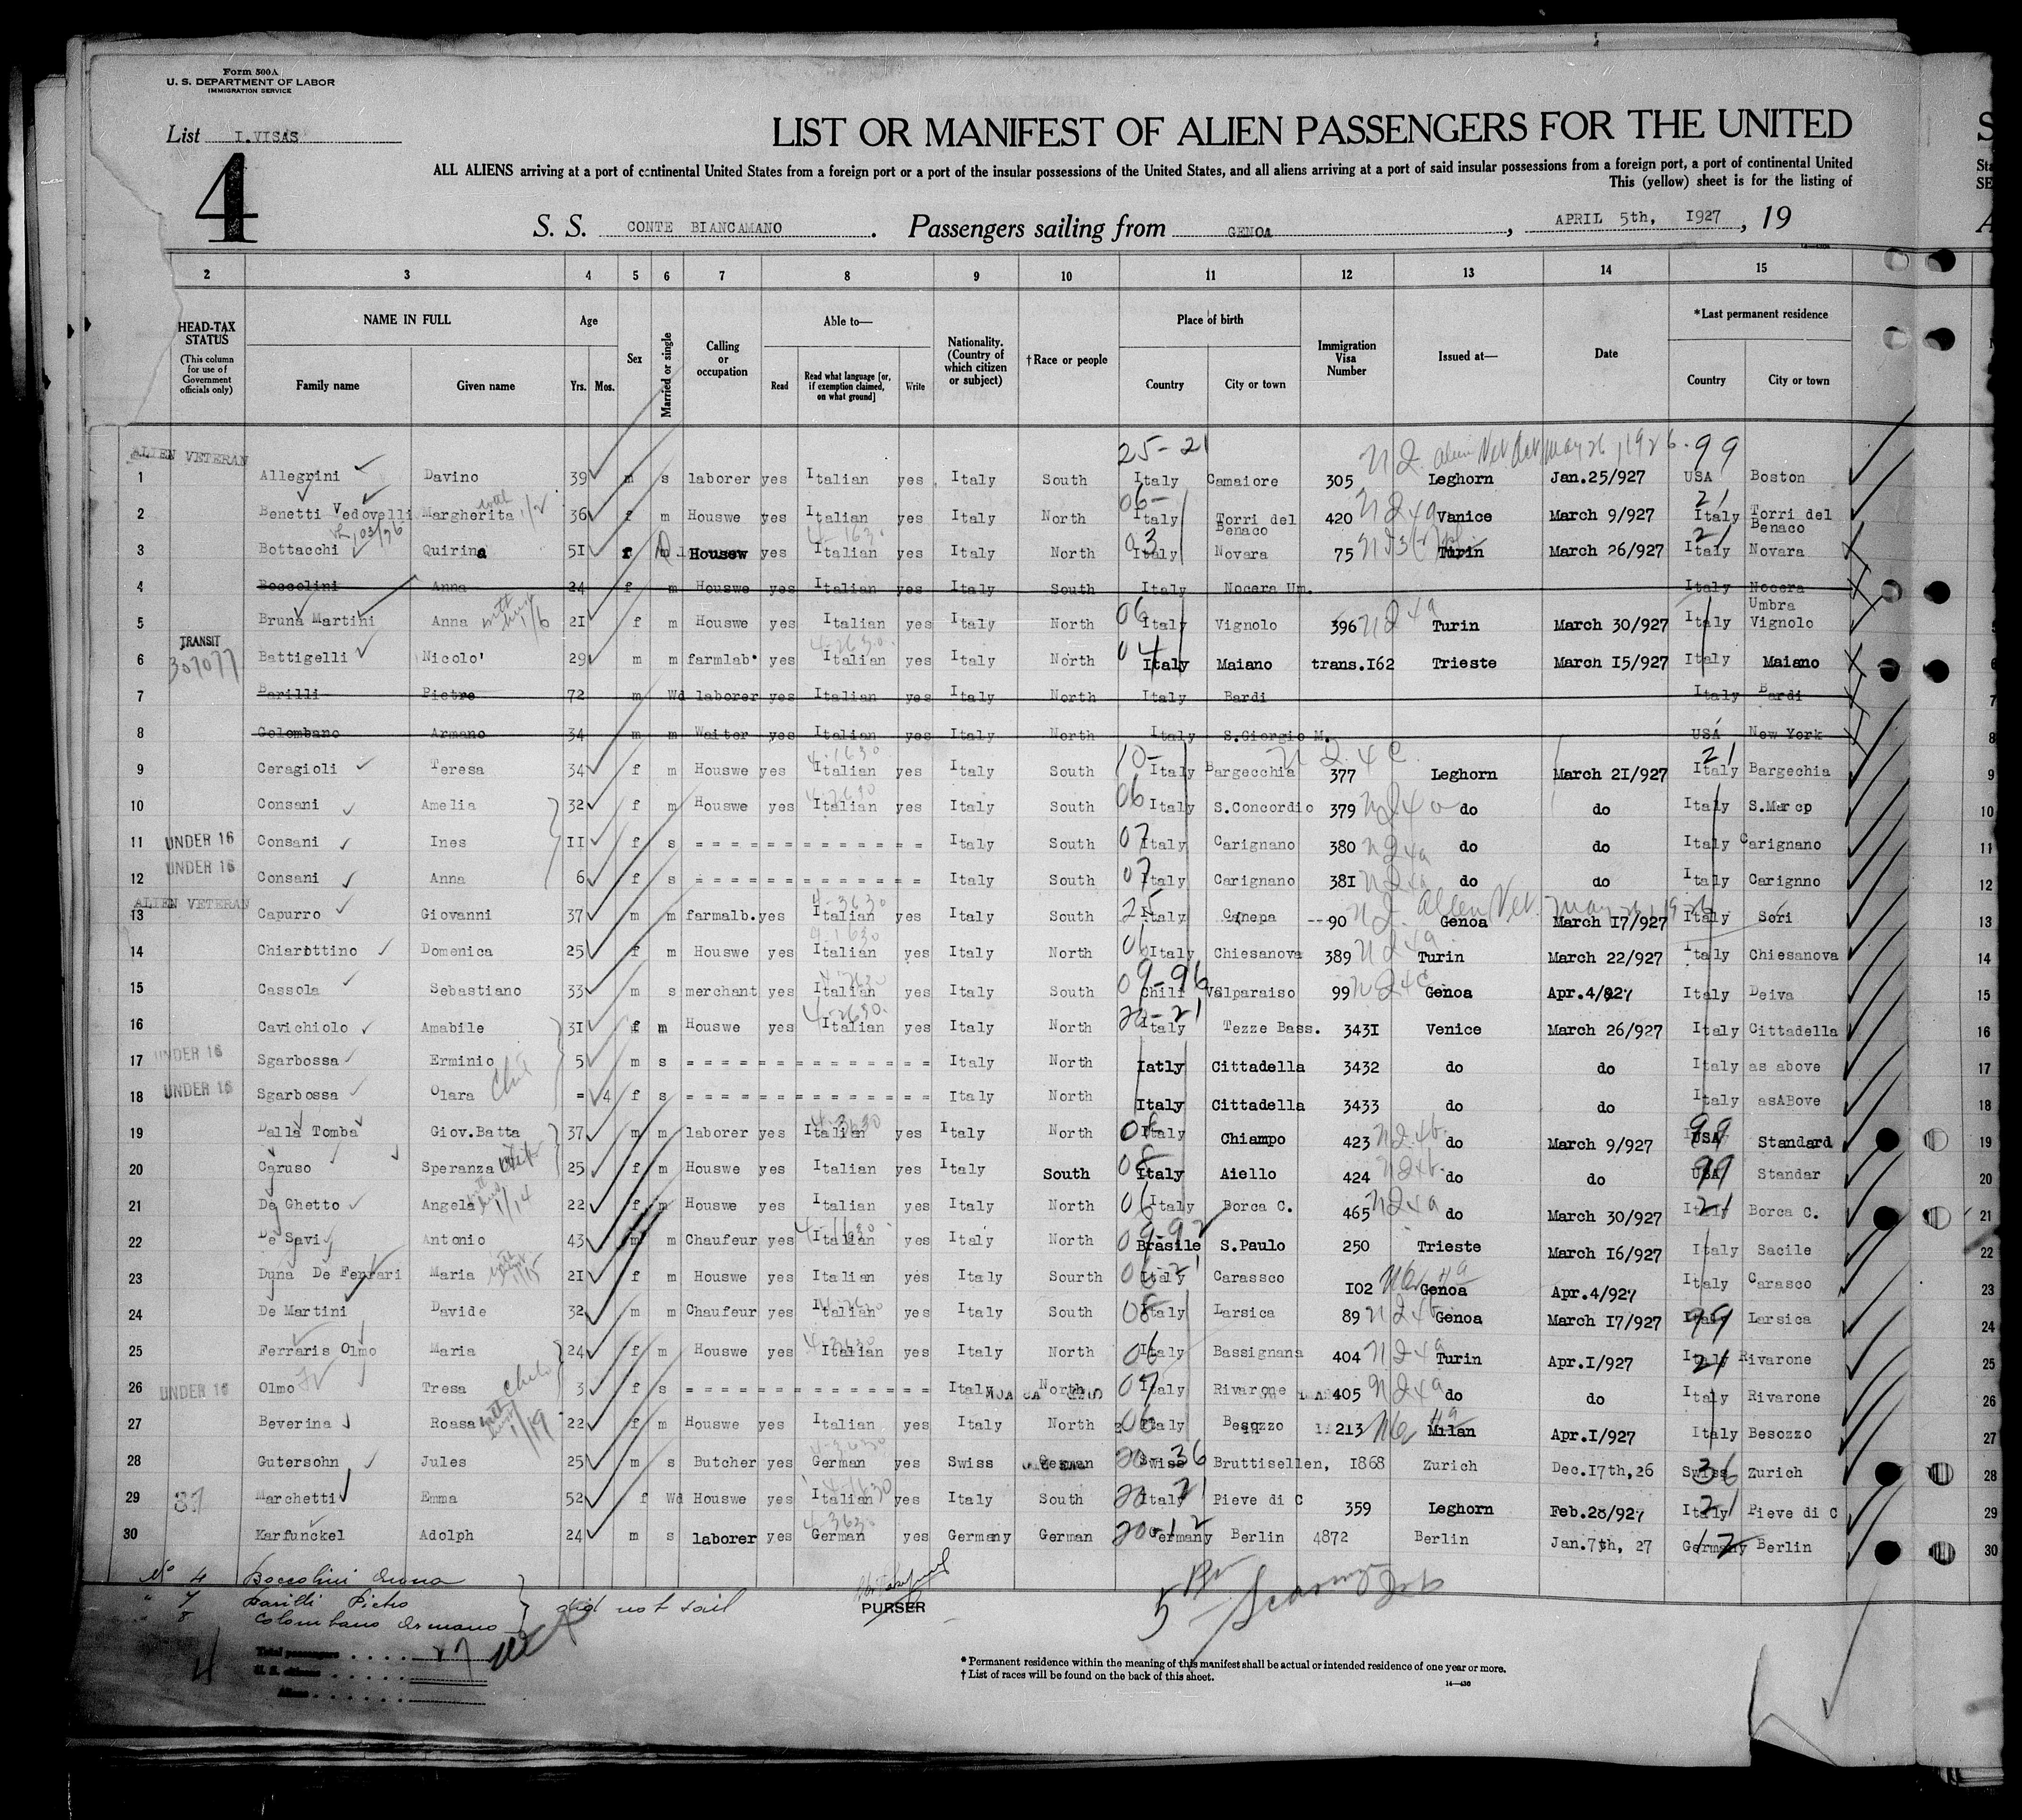 Form 500A
U. S. DEPARTMENT OF LABOR
IMMIGRATION SERVICE
List I.VISAS
4
LIST OR MANIFEST OF ALIEN PASSENGERS FOR THE UNITED
ALL ALIENS arriving at a port of continental United States from a foreign port or a port of the insular possessions of the United States, and all aliens arriving at a port of said insular possessions from a foreign port, a port of continental United
This (yellow) sheet is for the listing of
S. S. CONTE BIANCAMANO. Passengers sailing from GENOA, APRIL 5th, I927, 19
2 3 4 5 6 7 8 9 10 11 12 13 14 15
HEAD-TAX STATUS (This column for use of Government officials only) NAME IN FULL Family name Given name Age Yrs. Mos. Sex Married or single Calling or occupation Able to— Read Read what language [or, if exemption claimed, on what ground] Write Nationality. (Country of which citizen or subject) †Race or people Place of birth Country City or town Immigration Visa Number Issued at— Date *Last permanent residence Country City or town
ALIEN VETERAN 25-21 Alien Vet Act May 26, 1926. 99
1 Allegrini Davino 39 m s laborer yes Italian yes Italy South Italy Camaiore 305 Leghorn Jan.25/927 USA Boston
2 Benetti Vedovelli Margherita 36 f m Houswe yes Italian yes Italy North Italy Torri del Benaco 420 Vanice March 9/927 Italy Torri del Benaco
3 Bottacchi Quirina 5I f m Housew yes Italian yes Italy North Italy Novara 75 Turin March 26/927 Italy Novara
4 Boccolini Anna 24 f m Houswe yes Italian yes Italy South Italy Nocera Um. Italy Nocera Umbra
5 Bruna Martini Anna 2I f m Houswe yes Italian yes Italy North Italy Vignolo 396 Turin March 30/927 Italy Vignolo
TRANSIT 307077
6 Battigelli Nicolo' 29 m m farmlab. yes Italian yes Italy North Italy Maiano trans.I62 Trieste March I5/927 Italy Maiano
7 Barilli Pietro 72 m Wd laborer yes Italian yes Italy North Italy Bardi Italy Bardi
8 Colombano Armano 34 m m Waiter yes Italian yes Italy North Italy S.Giorgio M. USA New York
9 Ceragioli Teresa 34 f m Houswe yes Italian yes Italy South Italy Bargecchia 377 Leghorn March 2I/927 Italy Bargechia
10 Consani Amelia 32 f m Houswe yes Italian yes Italy South Italy S.Concordio 379 do do Italy S.Marcp
11 UNDER 16 Consani Ines II f s Italy South Italy Carignano 380 do do Italy Carignano
12 UNDER 16 Consani Anna 6 f s Italy South Italy Carignano 38I do do Italy Carignno
ALIEN VETERAN Alien Vet. May 26, 1926
13 Capurro Giovanni 37 m m farmalb. yes Italian yes Italy South Italy Canepa 90 Genoa March I7/927 Italy Sori
14 Chiarottino Domenica 25 f m Houswe yes Italian yes Italy North Italy Chiesanova 389 Turin March 22/927 Italy Chiesanova
15 Cassola Sebastiano 33 m s merchant yes Italian yes Italy South Chili Valparaiso 99 Genoa Apr.4/927 Italy Deiva
16 Cavichiolo Amabile 3I f m Houswe yes Italian yes Italy North Italy Tezze Bass. 343I Venice March 26/927 Italy Cittadella
17 UNDER 16 Sgarbossa Erminio 5 m s Italy North Iatly Cittadella 3432 do do Italy as above
18 UNDER 16 Sgarbossa Olara = 4 f s Italy North Italy Cittadella 3433 do do Italy asABove
19 Dalla Tomba Giov.Batta 37 m m laborer yes Italian yes Italy North Italy Chiampo 423 do March 9/927 USA Standard
20 Caruso Speranza 25 f m Houswe yes Italian yes Italy South Italy Aiello 424 do do USA Standar
21 De Ghetto Angela 22 f m Houswe yes Italian yes Italy North Italy Borca C. 465 do March 30/927 Italy Borca C.
22 De Savi Antonio 43 m m Chaufeur yes Italian yes Italy North Brasile S.Paulo 250 Trieste March I6/927 Italy Sacile
23 Duna De Ferrari Maria 2I f m Houswe yes Italian yes Italy Sourth Italy Carassco I02 Genoa Apr.4/927 Italy Carasco
24 De Martini Davide 32 m m Chaufeur yes Italian yes Italy South Italy Larsica 89 Genoa March I7/927 Italy Larsica
25 Ferraris Olmo Maria 24 f m Houswe yes Italian yes Italy North Italy Bassignana 404 Turin Apr.I/927 Italy Rivarone
26 UNDER 16 Olmo Tresa 3 f s Italy North Italy Rivarone 405 do do Italy Rivarone
27 Beverina Roasa 22 f m Houswe yes Italian yes Italy North Italy Besozzo 213 Milan Apr.I/927 Italy Besozzo
28 Gutersohn Jules 25 m s Butcher yes German yes Swiss German Swiss Bruttisellen, I868 Zurich Dec.I7th,26 Swiss Zurich
29 37 Marchetti Emma 52 f Wd Houswe yes Italian yes Italy South Italy Pieve di C 359 Leghorn Feb.28/927 Italy Pieve di C
30 Karfunckel Adolph 24 m s laborer yes German yes Germany German Germany Berlin 4872 Berlin Jan.7th, 27 Germany Berlin
No 4 Boccolini Anna
" 7 Barilli Pietro
" 8 Colombano Armano
did not sail
PURSER
Total passengers 27
U. S. citizens
Aliens
4
* Permanent residence within the meaning of this manifest shall be actual or intended residence of one year or more.
† List of races will be found on the back of this sheet.
14—430